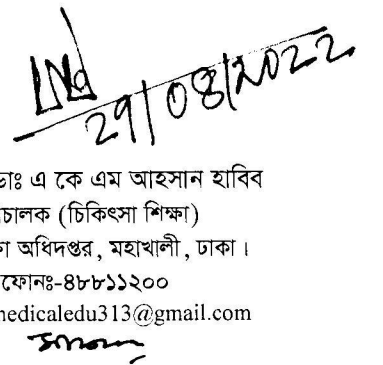 29/08/2022
ডাঃ এ কে এম আহসান হাবিব
চালক (চিকিৎসা শিক্ষা)
অধিদপ্তর, মহাখালী, ঢাকা।
ফোনঃ-৪৮৮১১২০০
medicaledu313@gmail.com